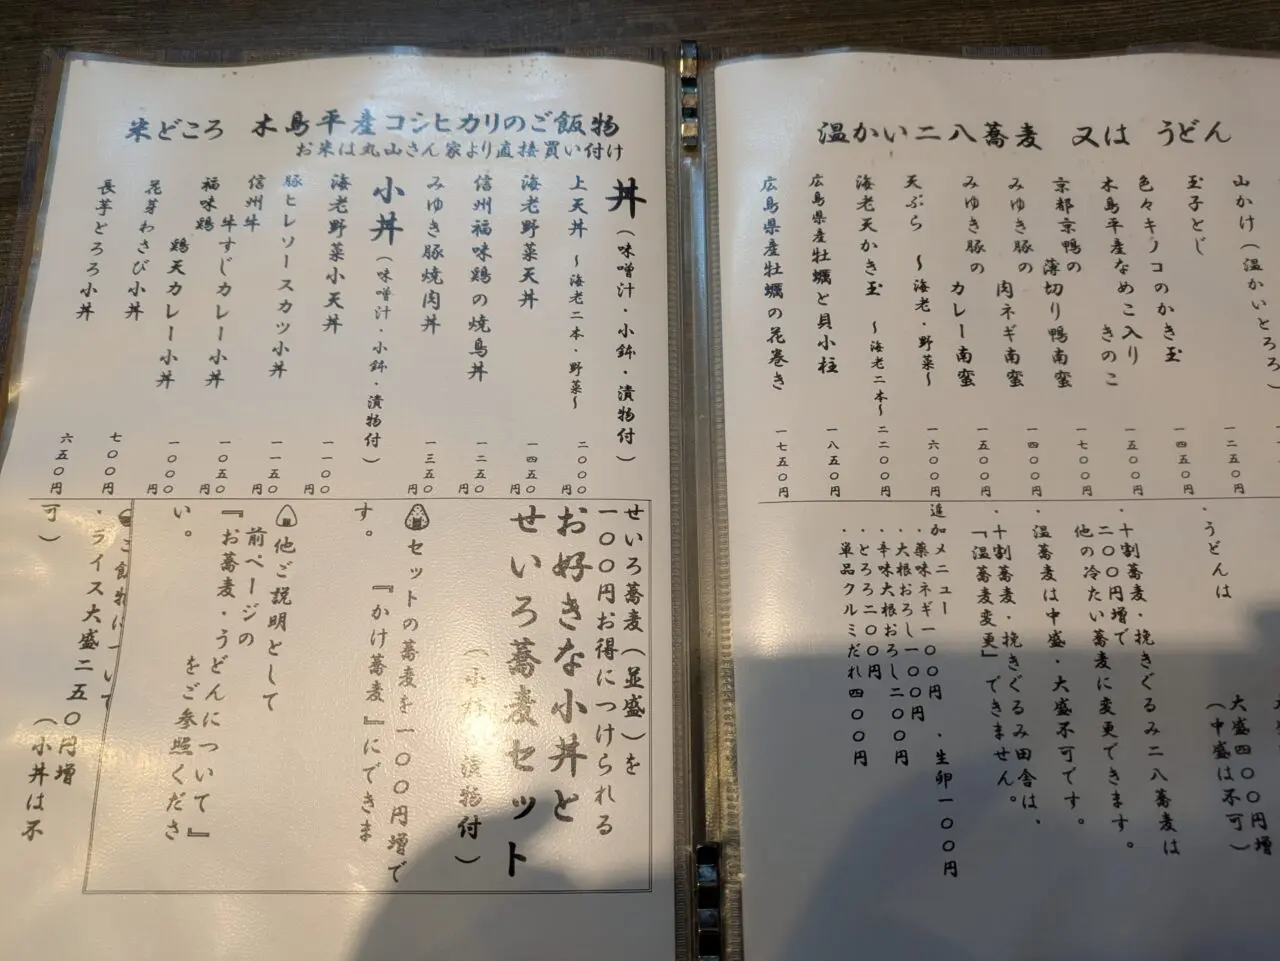 温かい二八蕎麦 又は うどん
山かけ(温かいとろろ)
一二五〇円
玉子とじ
一四五〇円
色々キノコのかき玉
一五〇〇円
木島平産なめこ入り きのこ
一七〇〇円
京都京鴨の 薄切り鴨南蛮
一四〇〇円
みゆき豚の 肉ネギ南蛮
一五〇〇円
みゆき豚の カレー南蛮
一六〇〇円
天ぷら ~海老・野菜~
二二〇〇円
海老天かき玉 ~海老二本~
一八五〇円
広島県産牡蠣と貝小柱
一七五〇円
広島県産牡蠣の花巻き
・うどんは
大盛四〇〇円増
(中盛は不可)
・十割蕎麦・挽きぐるみ二八蕎麦は
二〇〇円増で
他の冷たい蕎麦に変更できます。
・温蕎麦は中盛・大盛不可です。
・十割蕎麦・挽きぐるみ田舎は、
「温蕎麦変更」できません。
追加メニュー
・薬味ネギ一〇〇円 ・生卵一〇〇円
・大根おろし一〇〇円
・辛味大根おろし二〇〇円
・とろろ二〇〇円
・単品クルミだれ四〇〇円
米どころ 木島平産コシヒカリのご飯物
お米は丸山さん家より直接買い付け
丼(味噌汁・小鉢・漬物付)
上天丼 ~海老二本・野菜~
二〇〇〇円
海老野菜天丼
一四五〇円
信州福味鶏の焼鳥丼
一二五〇円
みゆき豚焼肉丼
一三五〇円
小丼(味噌汁・小鉢・漬物付)
海老野菜小天丼
一一〇〇円
豚ヒレソースカツ小丼
一一五〇円
信州牛 牛すじカレー小丼
一〇五〇円
福味鶏 鶏天カレー小丼
一〇〇〇円
花芽わさび小丼
七〇〇円
長芋とろろ小丼
六五〇円
せいろ蕎麦(並盛)を
一〇〇円お得につけられる
お好きな小丼と
せいろ蕎麦セット
(小鉢・漬物付)
セットの蕎麦を一〇〇円増で
『かけ蕎麦』にできま
す。
他ご説明として
前ページの
『お蕎麦・うどんについて』
をご参照くださ
い。
ご飯物について
・ライス大盛二五〇円増
(小丼は不
可)